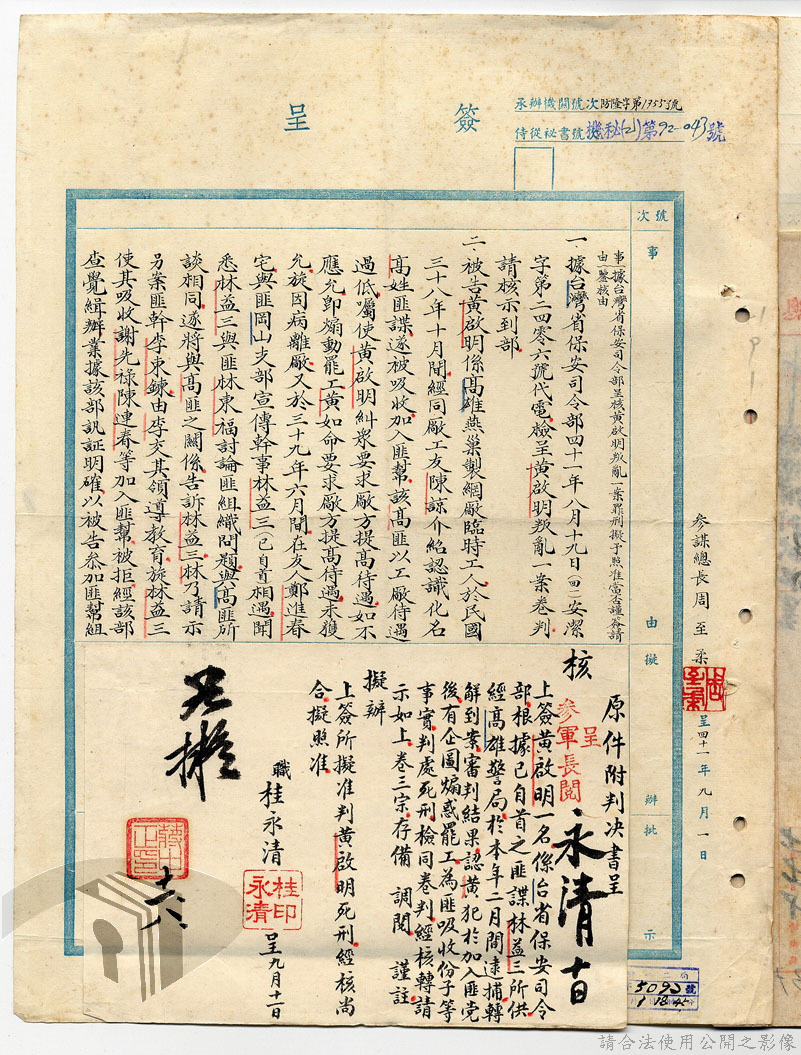 簽呈
承辦機關號次防隆字第1755號
侍從祕書號機秘(乙)第92-043號
號次
事由
擬辦
批示
參謀總長周至柔
呈四十一年九月一日
事由:據台灣省保安司令部呈核黃啟明叛亂一案罪刑擬予照准當否謹簽請
鑒核由
一、據台灣省保安司令部四十一年八月十九日(四一)安潔
字第二四零六號代電檢呈黃啟明叛亂一案卷判
請核示到部
二、被告黃啟明係高雄燕巢製網廠臨時工人於民國
三十八年十月間經同廠工友陳諒介紹認識化名
高姓匪諜遂被吸收加入匪幫該高匪以工廠待遇
過低囑使黃啟明糾眾要求廠方提高待遇如不
應允即煽動罷工黃如命要求廠方提高待遇未獲
允旋因病離廠又於三十九年六月間在友人鄭進春
宅與匪岡山支部宣傳幹事林益三(已自首)相遇聞
悉林益三與匪林東福討論匪組織問題與高匪所
談相同遂將與高匪之關係告訴林益三林乃請示
另案匪幹李東鍊由李交其領導教育旋林益三
使其吸收謝先祿陳連春等加入匪幫被拒經該部
查覺緝辦業據該部訊証明確以被告參加匪幫組
核
原件附判決書呈
呈
參軍長閱
永清 十一日
上簽黃啟明一名係台省保安司令
部根據已自首之匪諜林益三所供
經高雄警局於本年二月間逮捕轉
解到案審判結果認黃犯於加入匪黨
後有企圖煽惑罷工為匪吸收份子等
事實判處死刑檢同卷判經核轉請
示如上卷三宗存備 調閱 謹註
擬辦
上簽所擬准判黃啟明死刑經核尚
合擬照准
職桂永清
桂永清印
呈九月十一日
如擬
蔣中正印
十六
5092號
1 18 45
請合法使用公開之影像